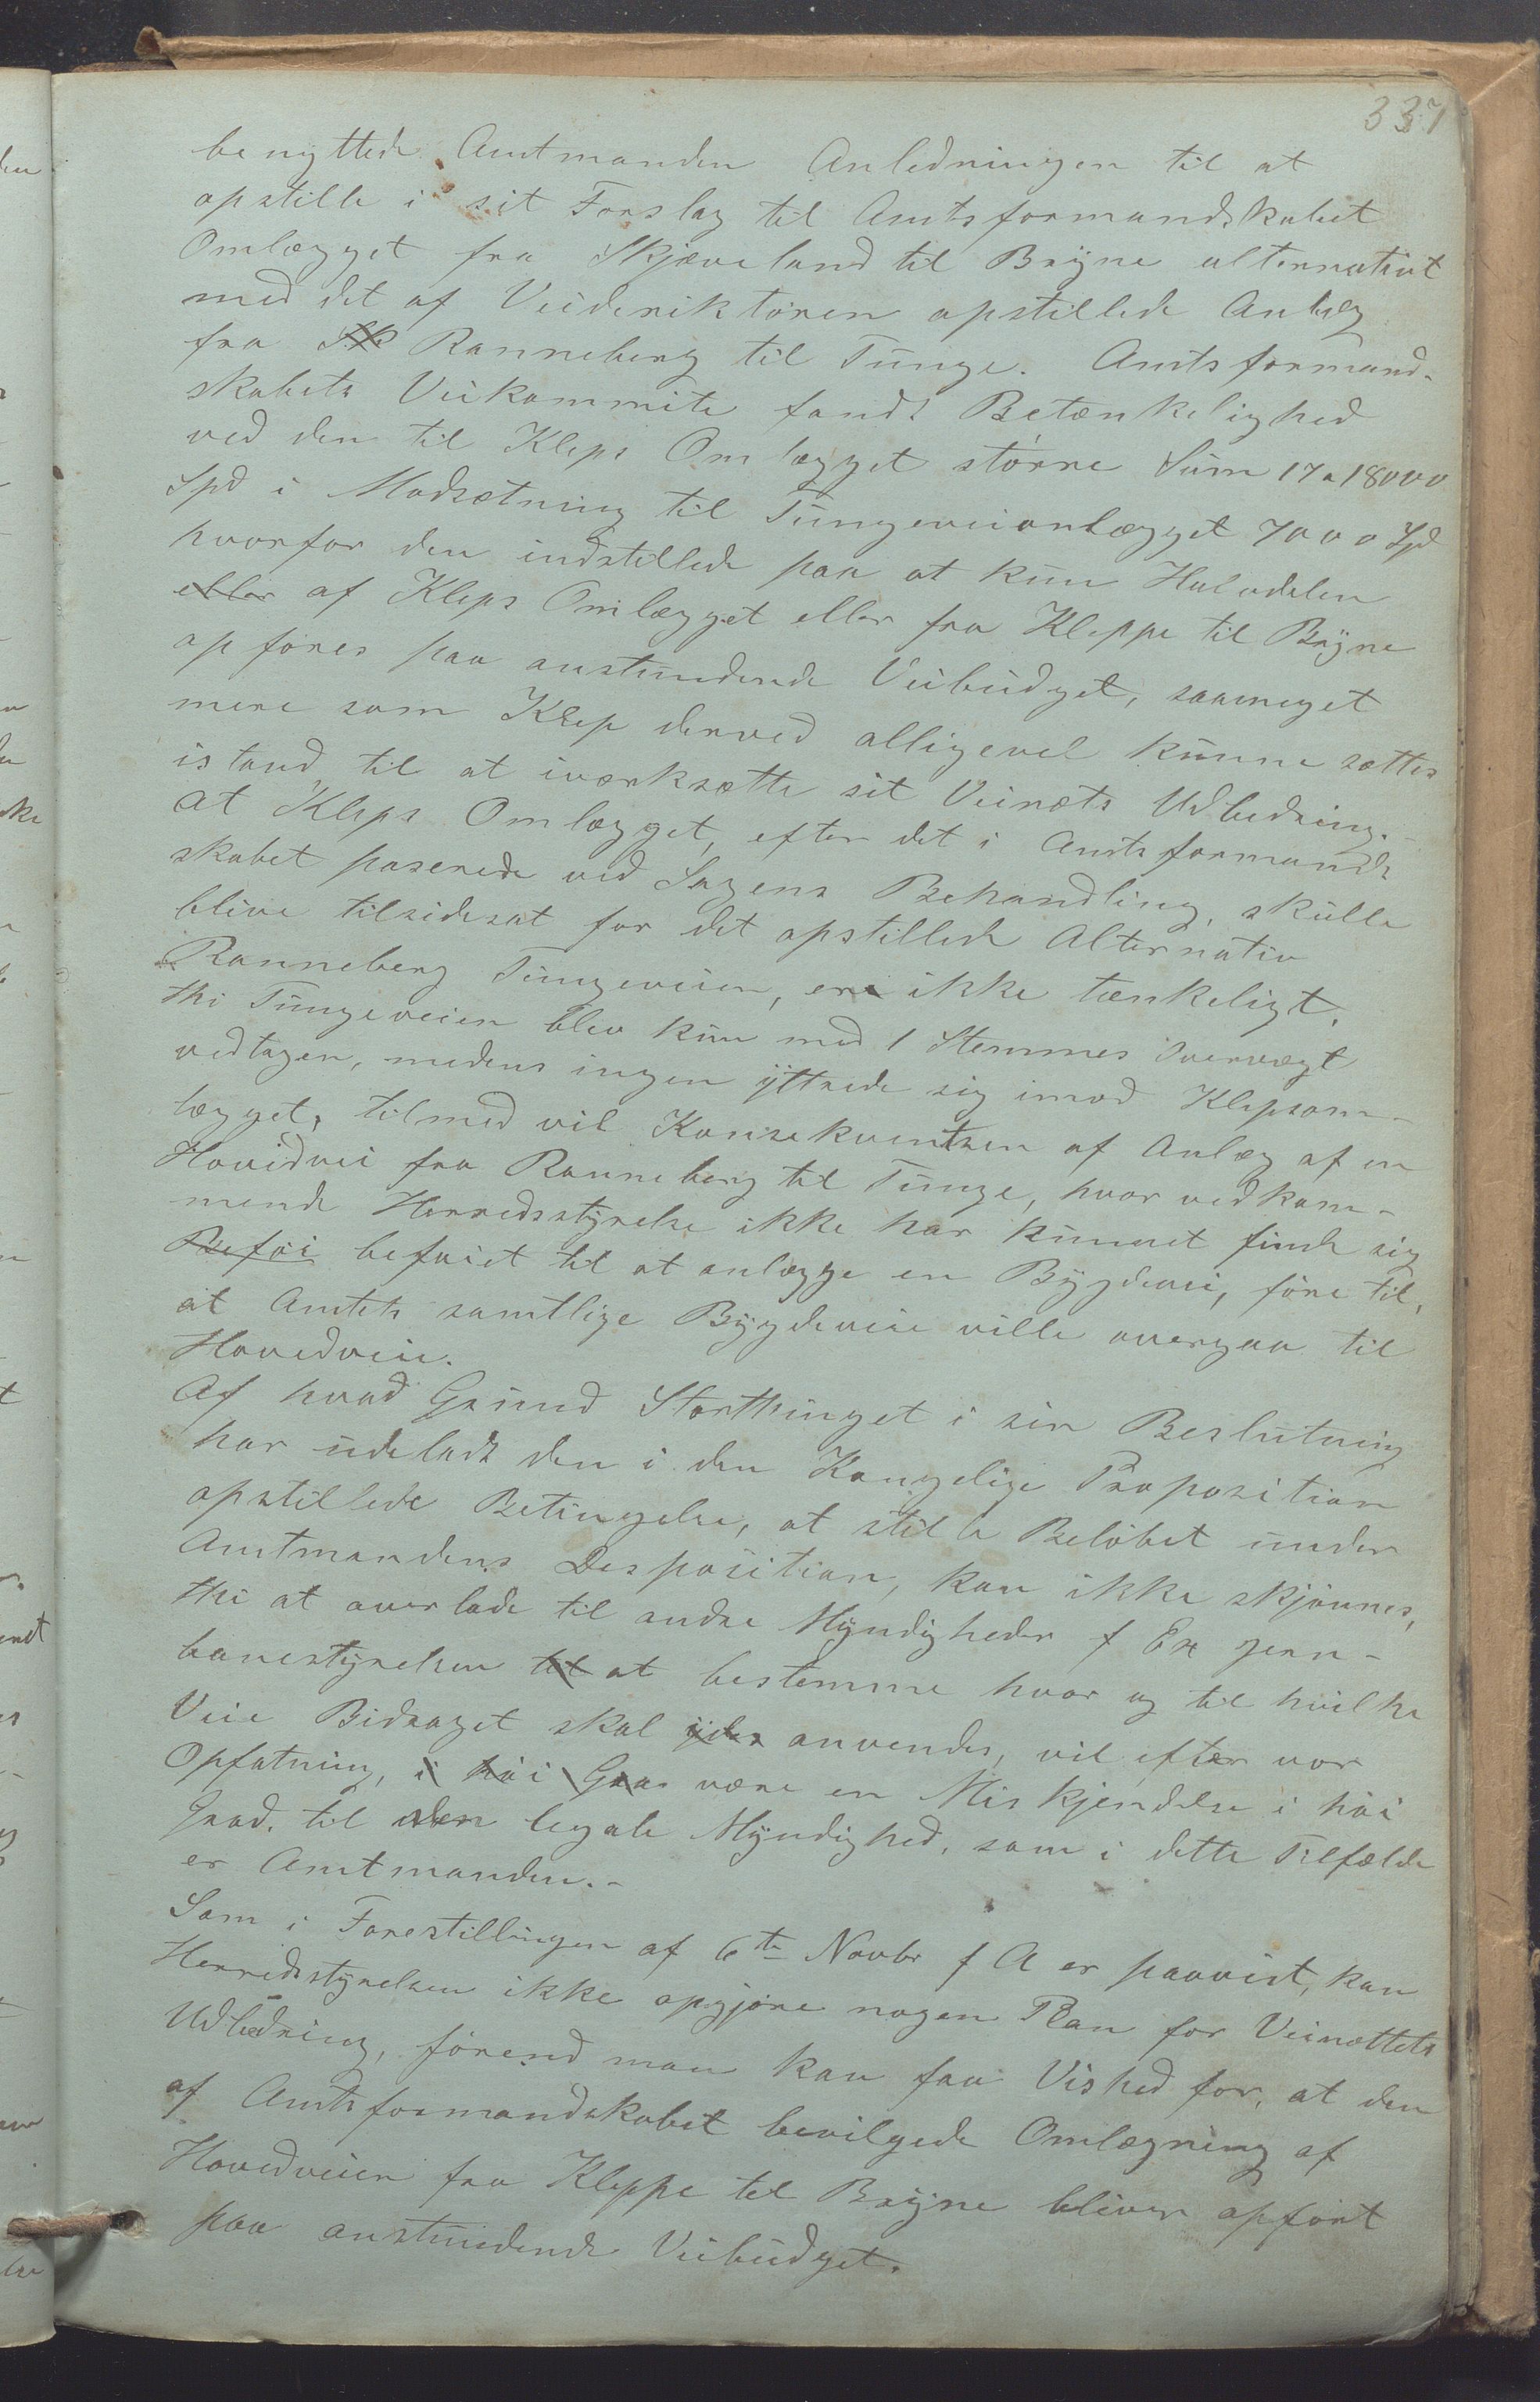 337
benyttede Amtmanden Anledningen til at
opstille i sit Forslag til Amtsformandskabet
Omlægget fra Skjæveland til Bryne alternativt
med det af Veideriktøren opstillede Anlæg
fra Sk Ranneberg til Tunge. Amtsformand-
skabets Veikommite fandt Betænkelighed
ved den til Kleps Omlægget større Sum 17 a 18000
Spd i Modsætning til Tungeveianlægget 7000 Spd
hvorfor den indstillede paa at kun Halvdelen
eller af Kleps Omlægget eller fra Kleppe til Bryne
opføres paa anstundende Veibudget, saameget
mere som Klep derved alligevel kunne sættes
istand til at iværksætte sit Veinæts Udbedring.
At Kleps Omlægget, efter det i Amtsformands
skabet paserede ved Sagens Behandling, skulle
blive tilsidesat for det opstillede Alternativ
Ranneberg Tungeveien, er ikke tænkeligt,
thi Tungeveien blev kun med 1 Stemmes Overvægt
vedtagen, medens ingen yttrede sig imod Klepsom-
lægget, tilmed vil Konsekventsen af Anlæg af en
Hovedvei fra Ranneberg til Tunge, hvor vedkom-
mende Herredsstyrelse ikke har kunnet finde sig
Beføi beføiet til at anlægge en Bygdevei, føre til,
at Amtets samtlige Bygdeveie ville overgaa til
Hovedveie.
Af hvad Grund Storthinget i sin Beslutning
har udeladt den i den Kongelige Proposition
opstillede Betingelse, at stille Beløbet under
Amtmandens Desposition, kan ikke skjønnes,
thi at overlade til andre Myndigheder f Ex Jern-
banestyrelsen til at bestemme hvor og til hvilke
Veie Bidraget skal ydes anvendes, vil efter vor
Opfatning, i høi Gra være en Miskjendelse i høi
Grad. til den legale Myndighed, som i dette Tilfælde
er Amtmanden.-
Som i Forestillingen af 6te Novbr f A er paavist, kan
Herredsstyrelsen ikke opgjøre nogen Plan for Veinættets
Udbedring, førend man kan faa Vished for, at den
af Amtsformandskabet bevilgede Omlægning af
Hovedveien fra Kleppe til Bryne bliver opført
paa anstundende Veibudget.